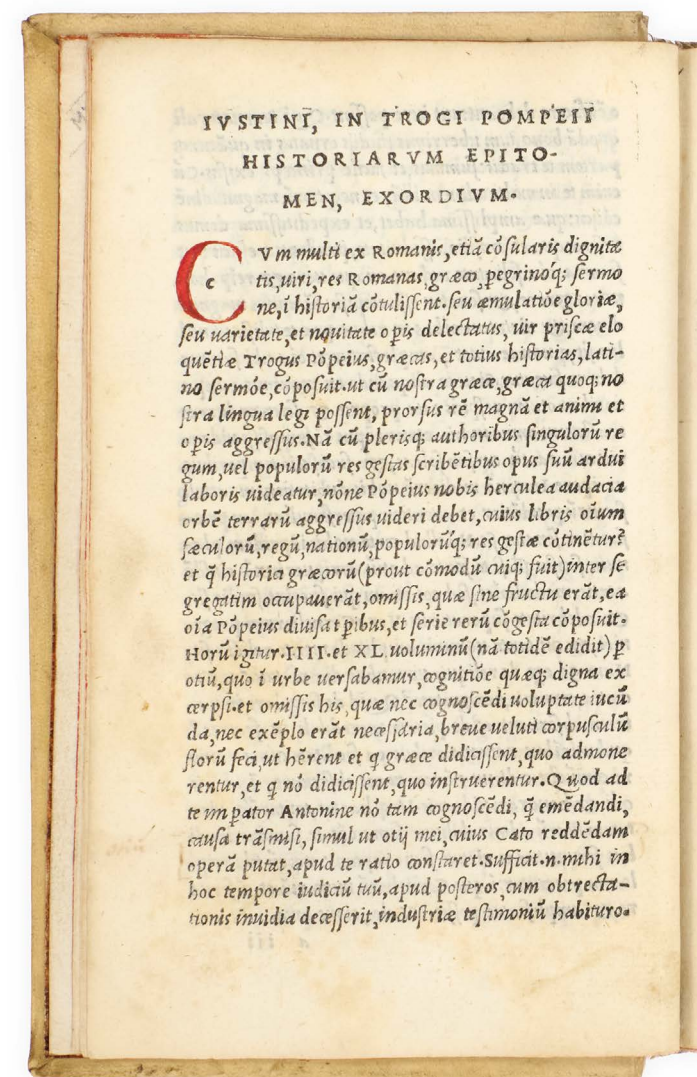 IVSTINI, IN TROGI POMPEII
HISTORIARVM EPITO-
MEN, EXORDIVM.
C Vm multi ex Romanis, etiã cõsularis dignitæ
c tis, uiri, res Romanas, græco, ꝑegrinoq́; sermo
ne, ĩ historiã cõtulissent. seu æmulatiõe gloriæ,
seu uarietate, et nouitate oꝑis delectatus, uir priscæ elo
quẽtiæ Trogus Põpeius, græcas, et totius historias, lati-
no sermõe, cõposuit. ut cũ nostra græce, græca quoq; no
stra lingua legi possent, prorsus rẽ magnã et animi et
oꝑis aggressus. Nã cũ plerisq; authoribus singulorũ re
gum, uel populorũ res gestas scribẽtibus opus suũ ardui
laboris uideatur, nõne Põpeius nobis herculea audacia
orbẽ terrarũ aggressus uideri debet, cuius libris oĩum
sæculorũ, regũ, nationũ, populorũq́; res gestæ cõtinẽtur?
et q̃ historici græcorũ (prout cõmodũ cuiq; fuit) inter se
gregatim occupauerãt, omissis, quæ sine fructu erãt, ea
oĩa Põpeius diuisa tꝑibus, et serie rerũ cõgesta cõposuit.
Horũ igitur .IIII. et XL uoluminũ (nã totidẽ edidit) ꝑ
otiũ, quo ĩ urbe uersabamur, cognitiõe quæq; digna ex
cerpsi. et omissis his, quæ nec cognoscẽdi uoluptate iucũ
da, nec exẽplo erãt necessaria, breue ueluti corpusculũ
florũ feci, ut hẽrent et q græce didicissent, quo admone
rentur, et q nõ didicissent, quo instruerentur. Quod ad
te imꝑator Antonine nõ tam cognoscẽdi, q̃ emẽdandi,
causa trãsmisi, simul ut otij mei, cuius Cato reddẽdam
operã putat, apud te ratio constaret. Sufficit .n. mihi in
hoc tempore iudiciũ tuũ, apud posteros, cum obtrecta-
tionis inuidia decesserit, industriæ testimoniũ habituro.